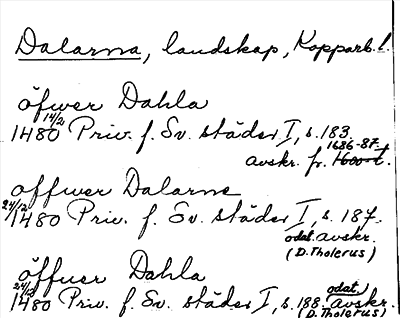 Dalarna, landskap, Kopparb. l.
öfwer Dahla
14/2 1480 Priv. f. Sv. städer I, s. 183.
1686-87.
avskr. fr. 1600-t.
öffwer Dalarne
24/12 1480 Priv. f. Sv. städer I, s. 187.
odat. avskr.
(D. Tholerus)
öffuer Dahla
24/12 1480 Priv. f. Sv. städer I, s. 188. odat. avskr.
(D. Tholerus)